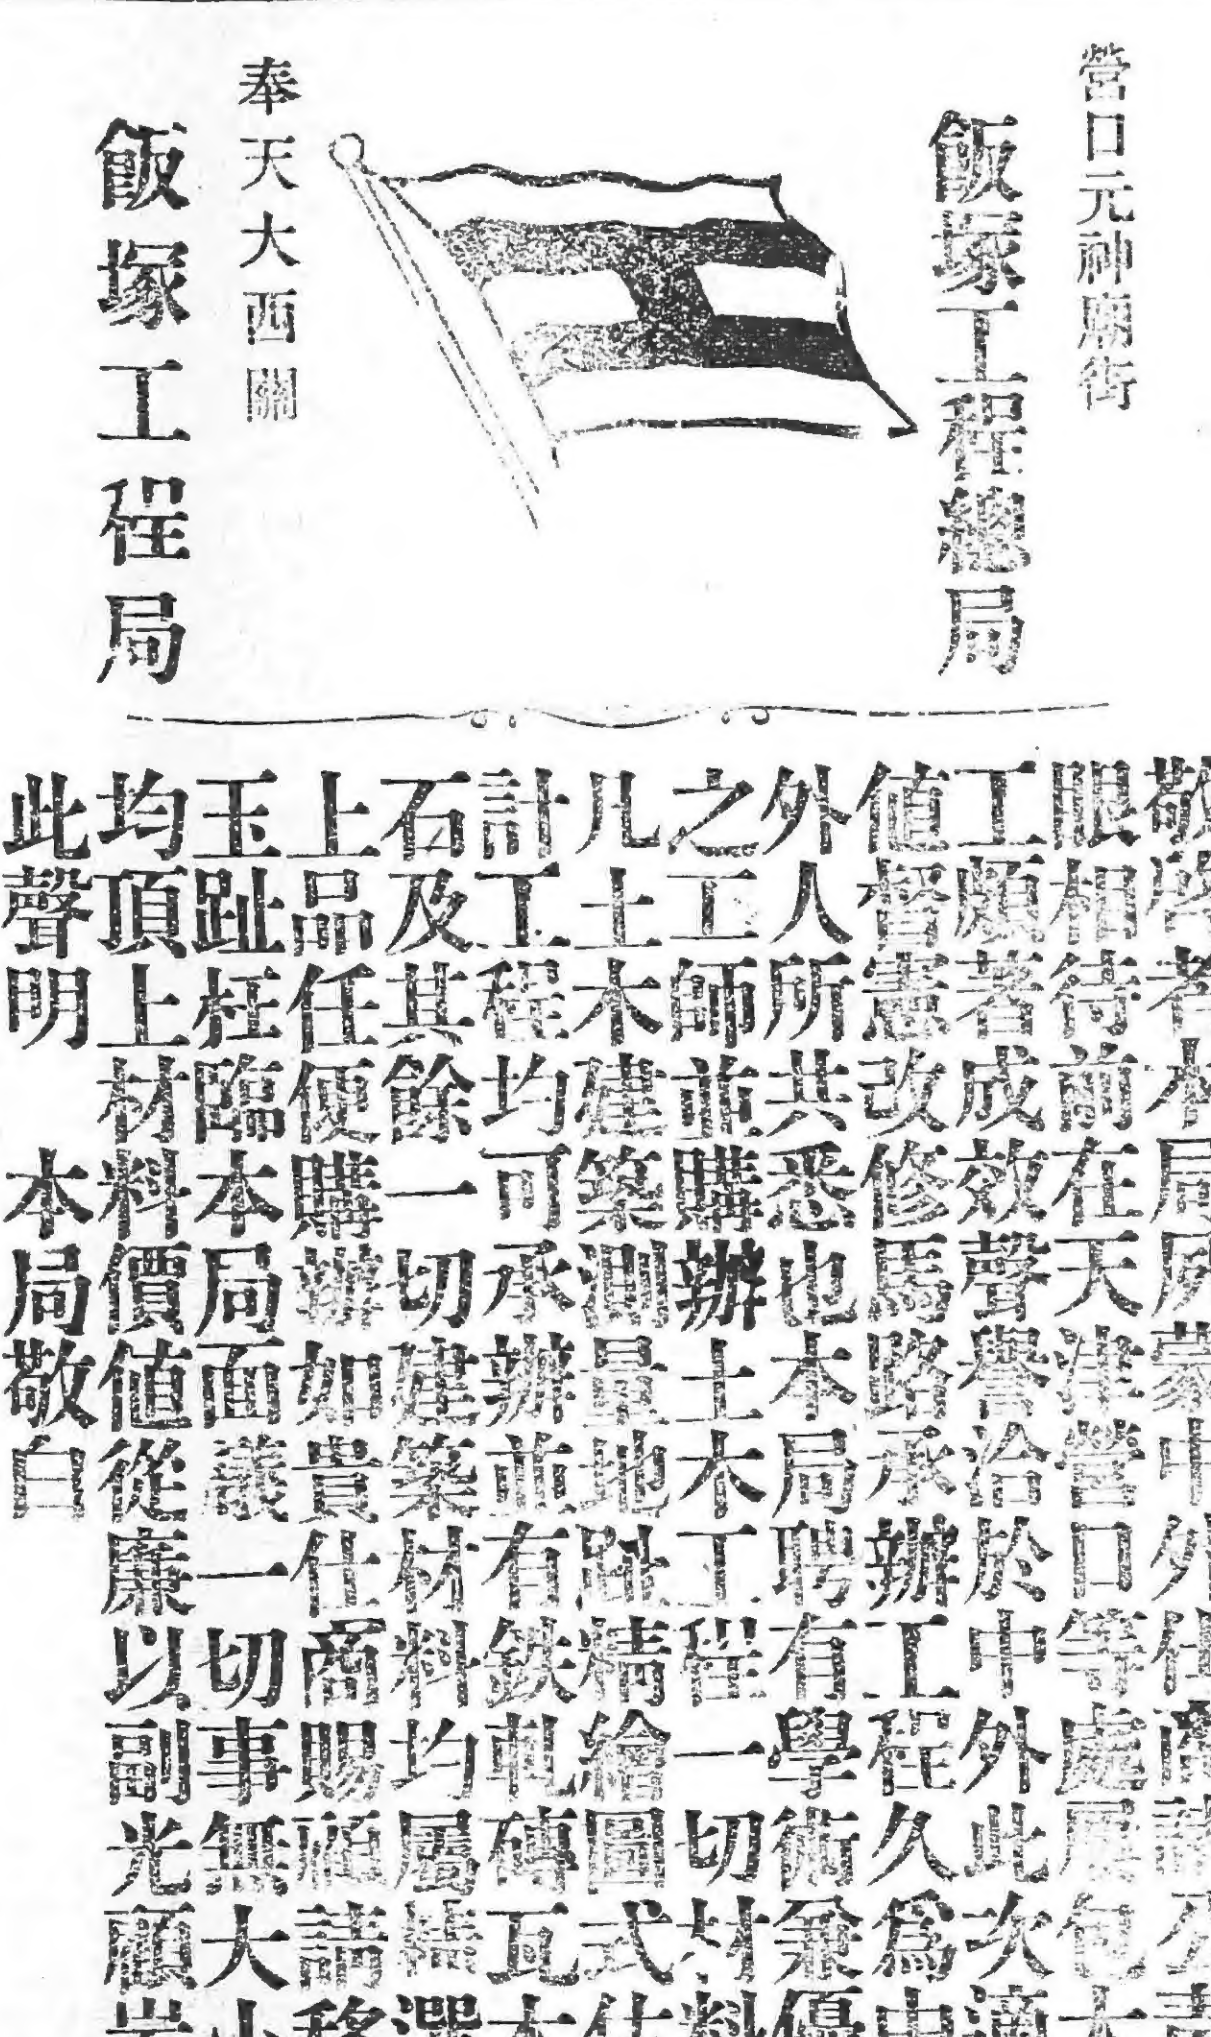 營口元神廟街
飯塚工程總局
奉天大西關
飯塚工程局
敬啓者本局原蒙中外仕商諸公青
眼相待前在天津營口等處屢包大
工頗著成效聲譽洽於中外此次
值奮畫改修馬路承辦工程久爲中
外人所共悉也本局聘有學術兼優
之工師並購辦土木工程一切材料
凡土木建築測量地趾清繪圖式估
計工程均可承辦並有鐵瓦磚瓦木
石及其餘一切建築材料均屬精選
上品任便購辦如貴仕商賜顧請移
玉趾枉臨本局面議一切事無大小
均頂上材料價值從廉以副光顧
此聲明 本局敬白